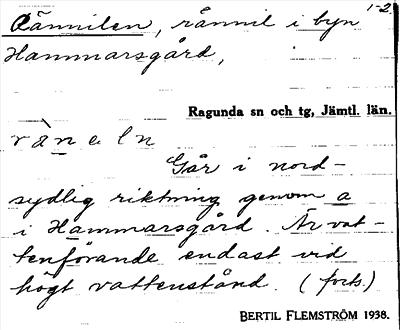 1-2.
Rännilen, rännil i byn
Hammarsgård,
Ragunda sn och tg, Jämtl. län.
ràneln
Går i nord-
sydlig riktning genom a
i Hammarsgård. Är vat-
tenförande endast vid
högt vattenstånd. (forts.)
BERTIL FLEMSTRÖM 1938.